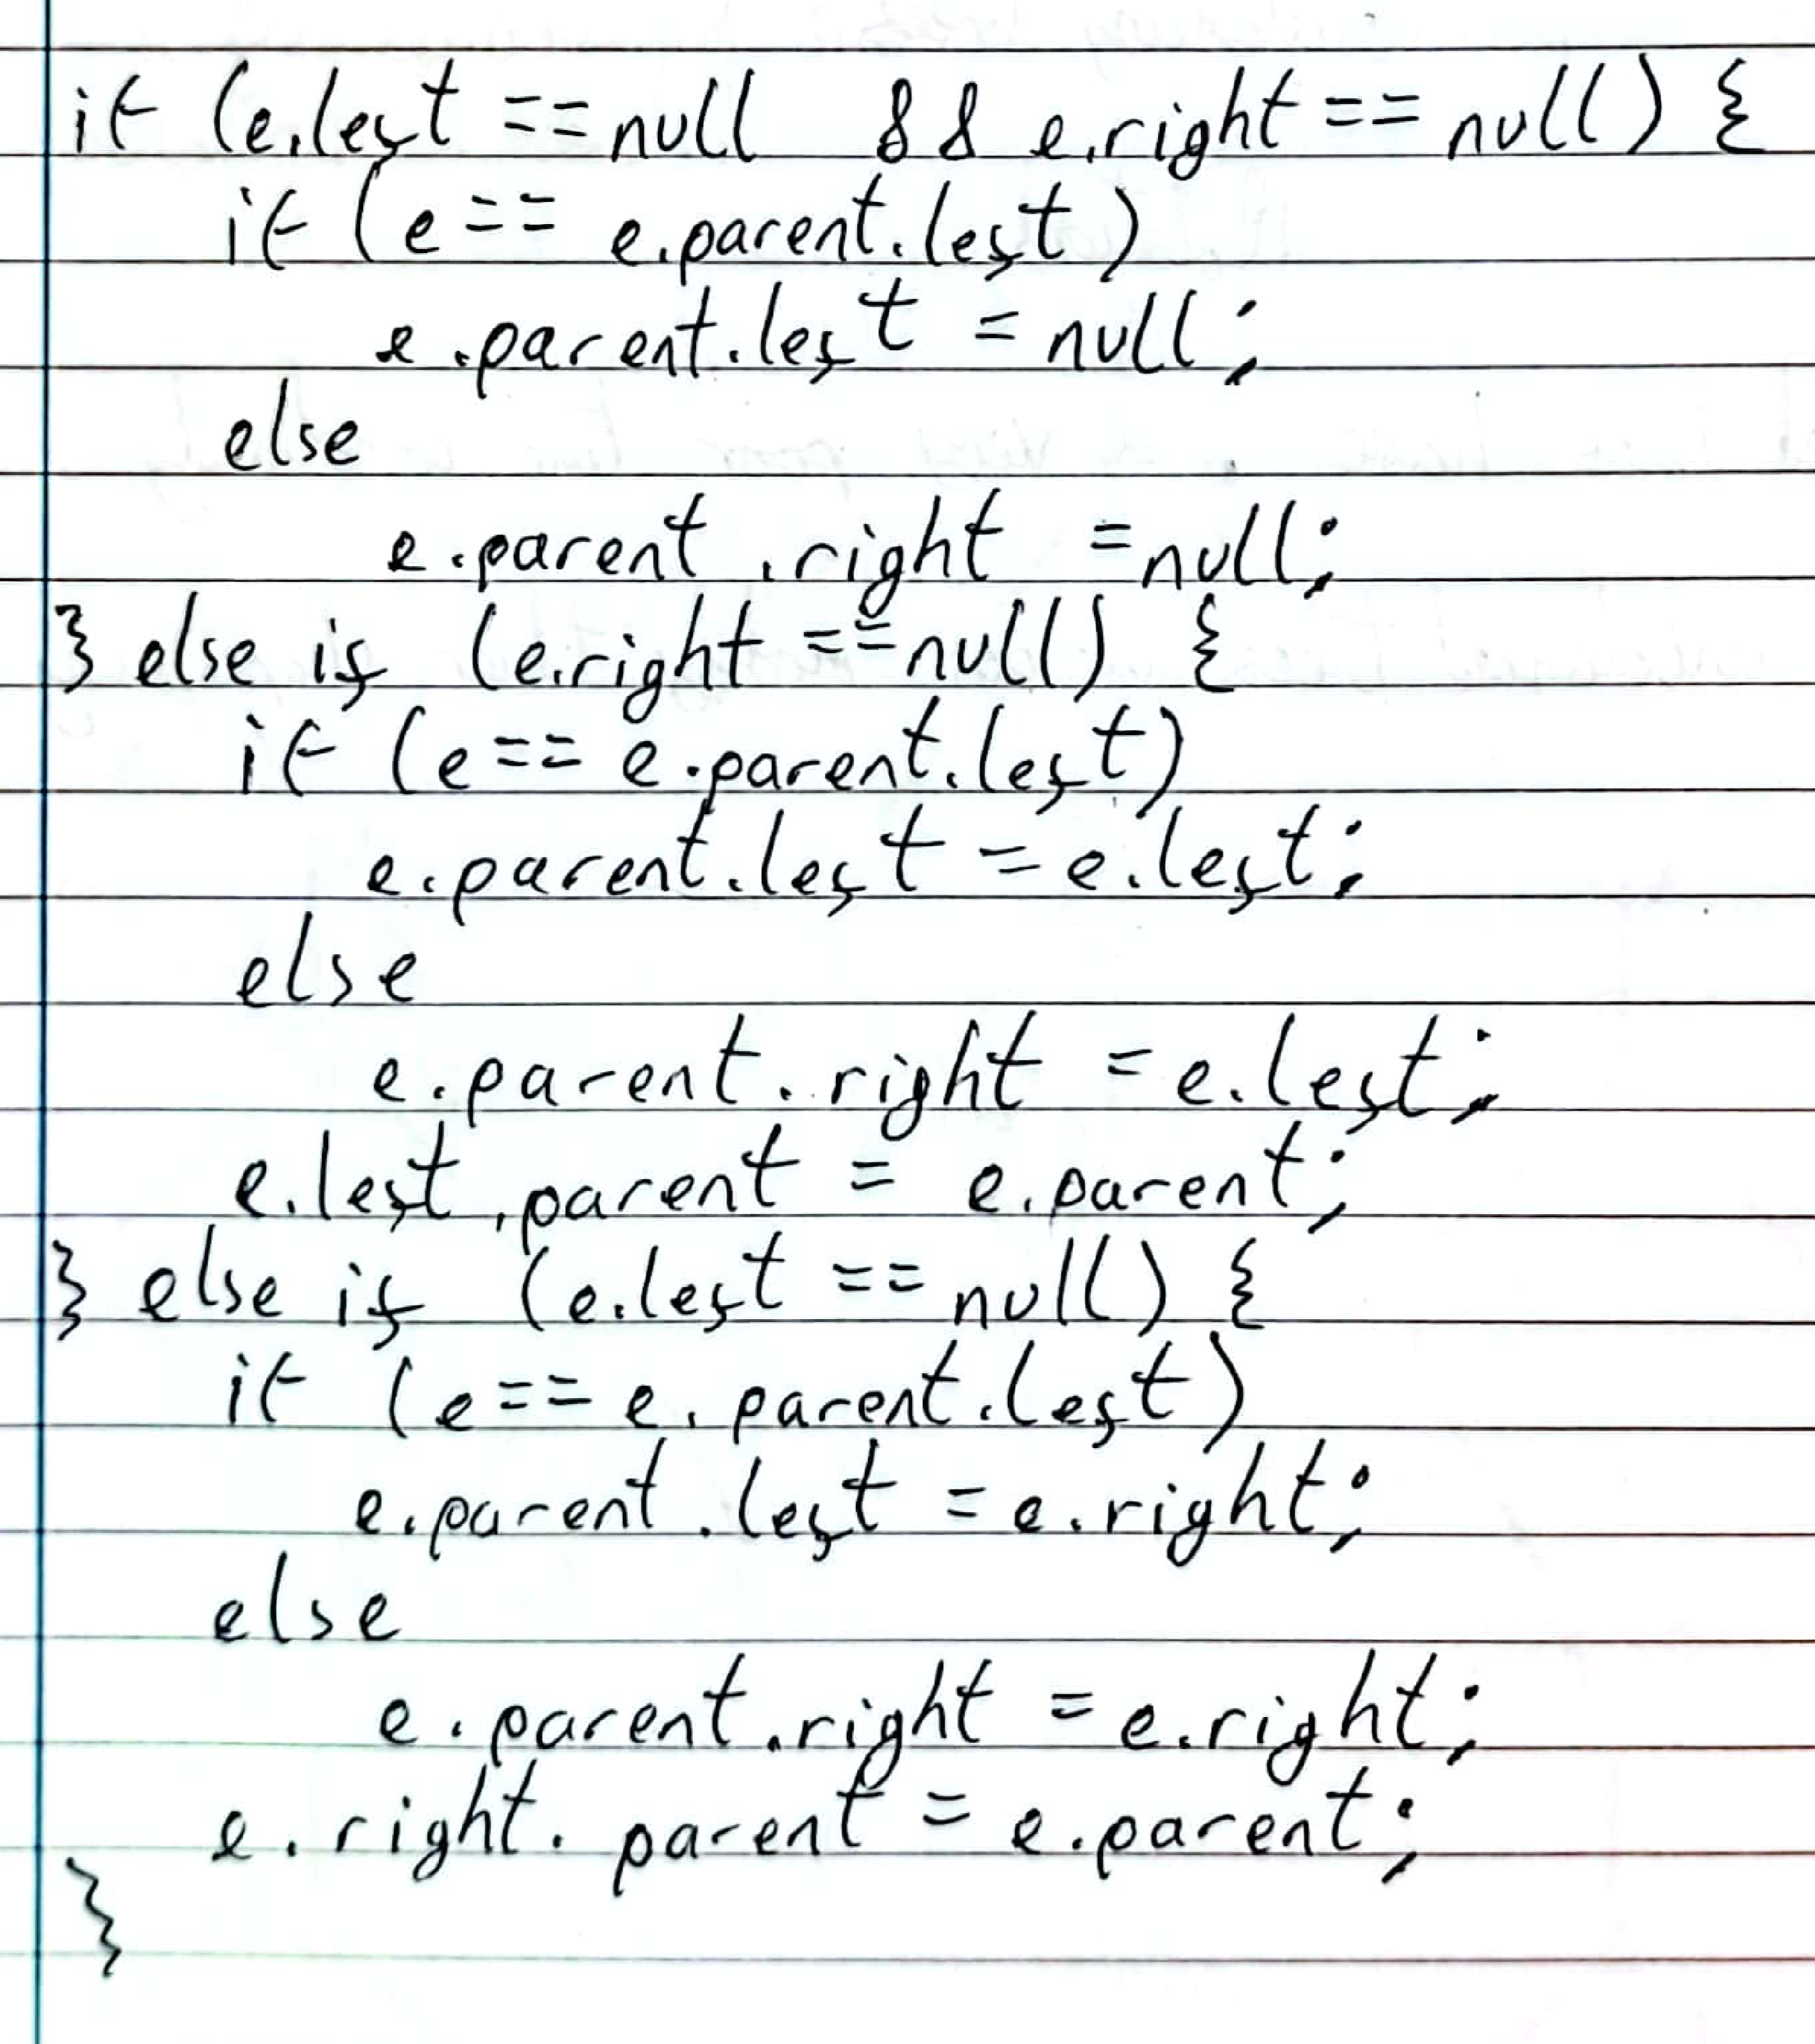 if (e.left == null && e.right == null) {
if (e == e.parent.left)
e.parent.left = null;
else
e.parent.right = null;
} else if (e.right == null) {
if (e == e.parent.left)
e.parent.left = e.left;
else
e.parent.right = e.left;
e.left.parent = e.parent;
} else if (e.left == null) {
if (e == e.parent.left)
e.parent.left = e.right;
else
e.parent.right = e.right;
e.right.parent = e.parent;
}